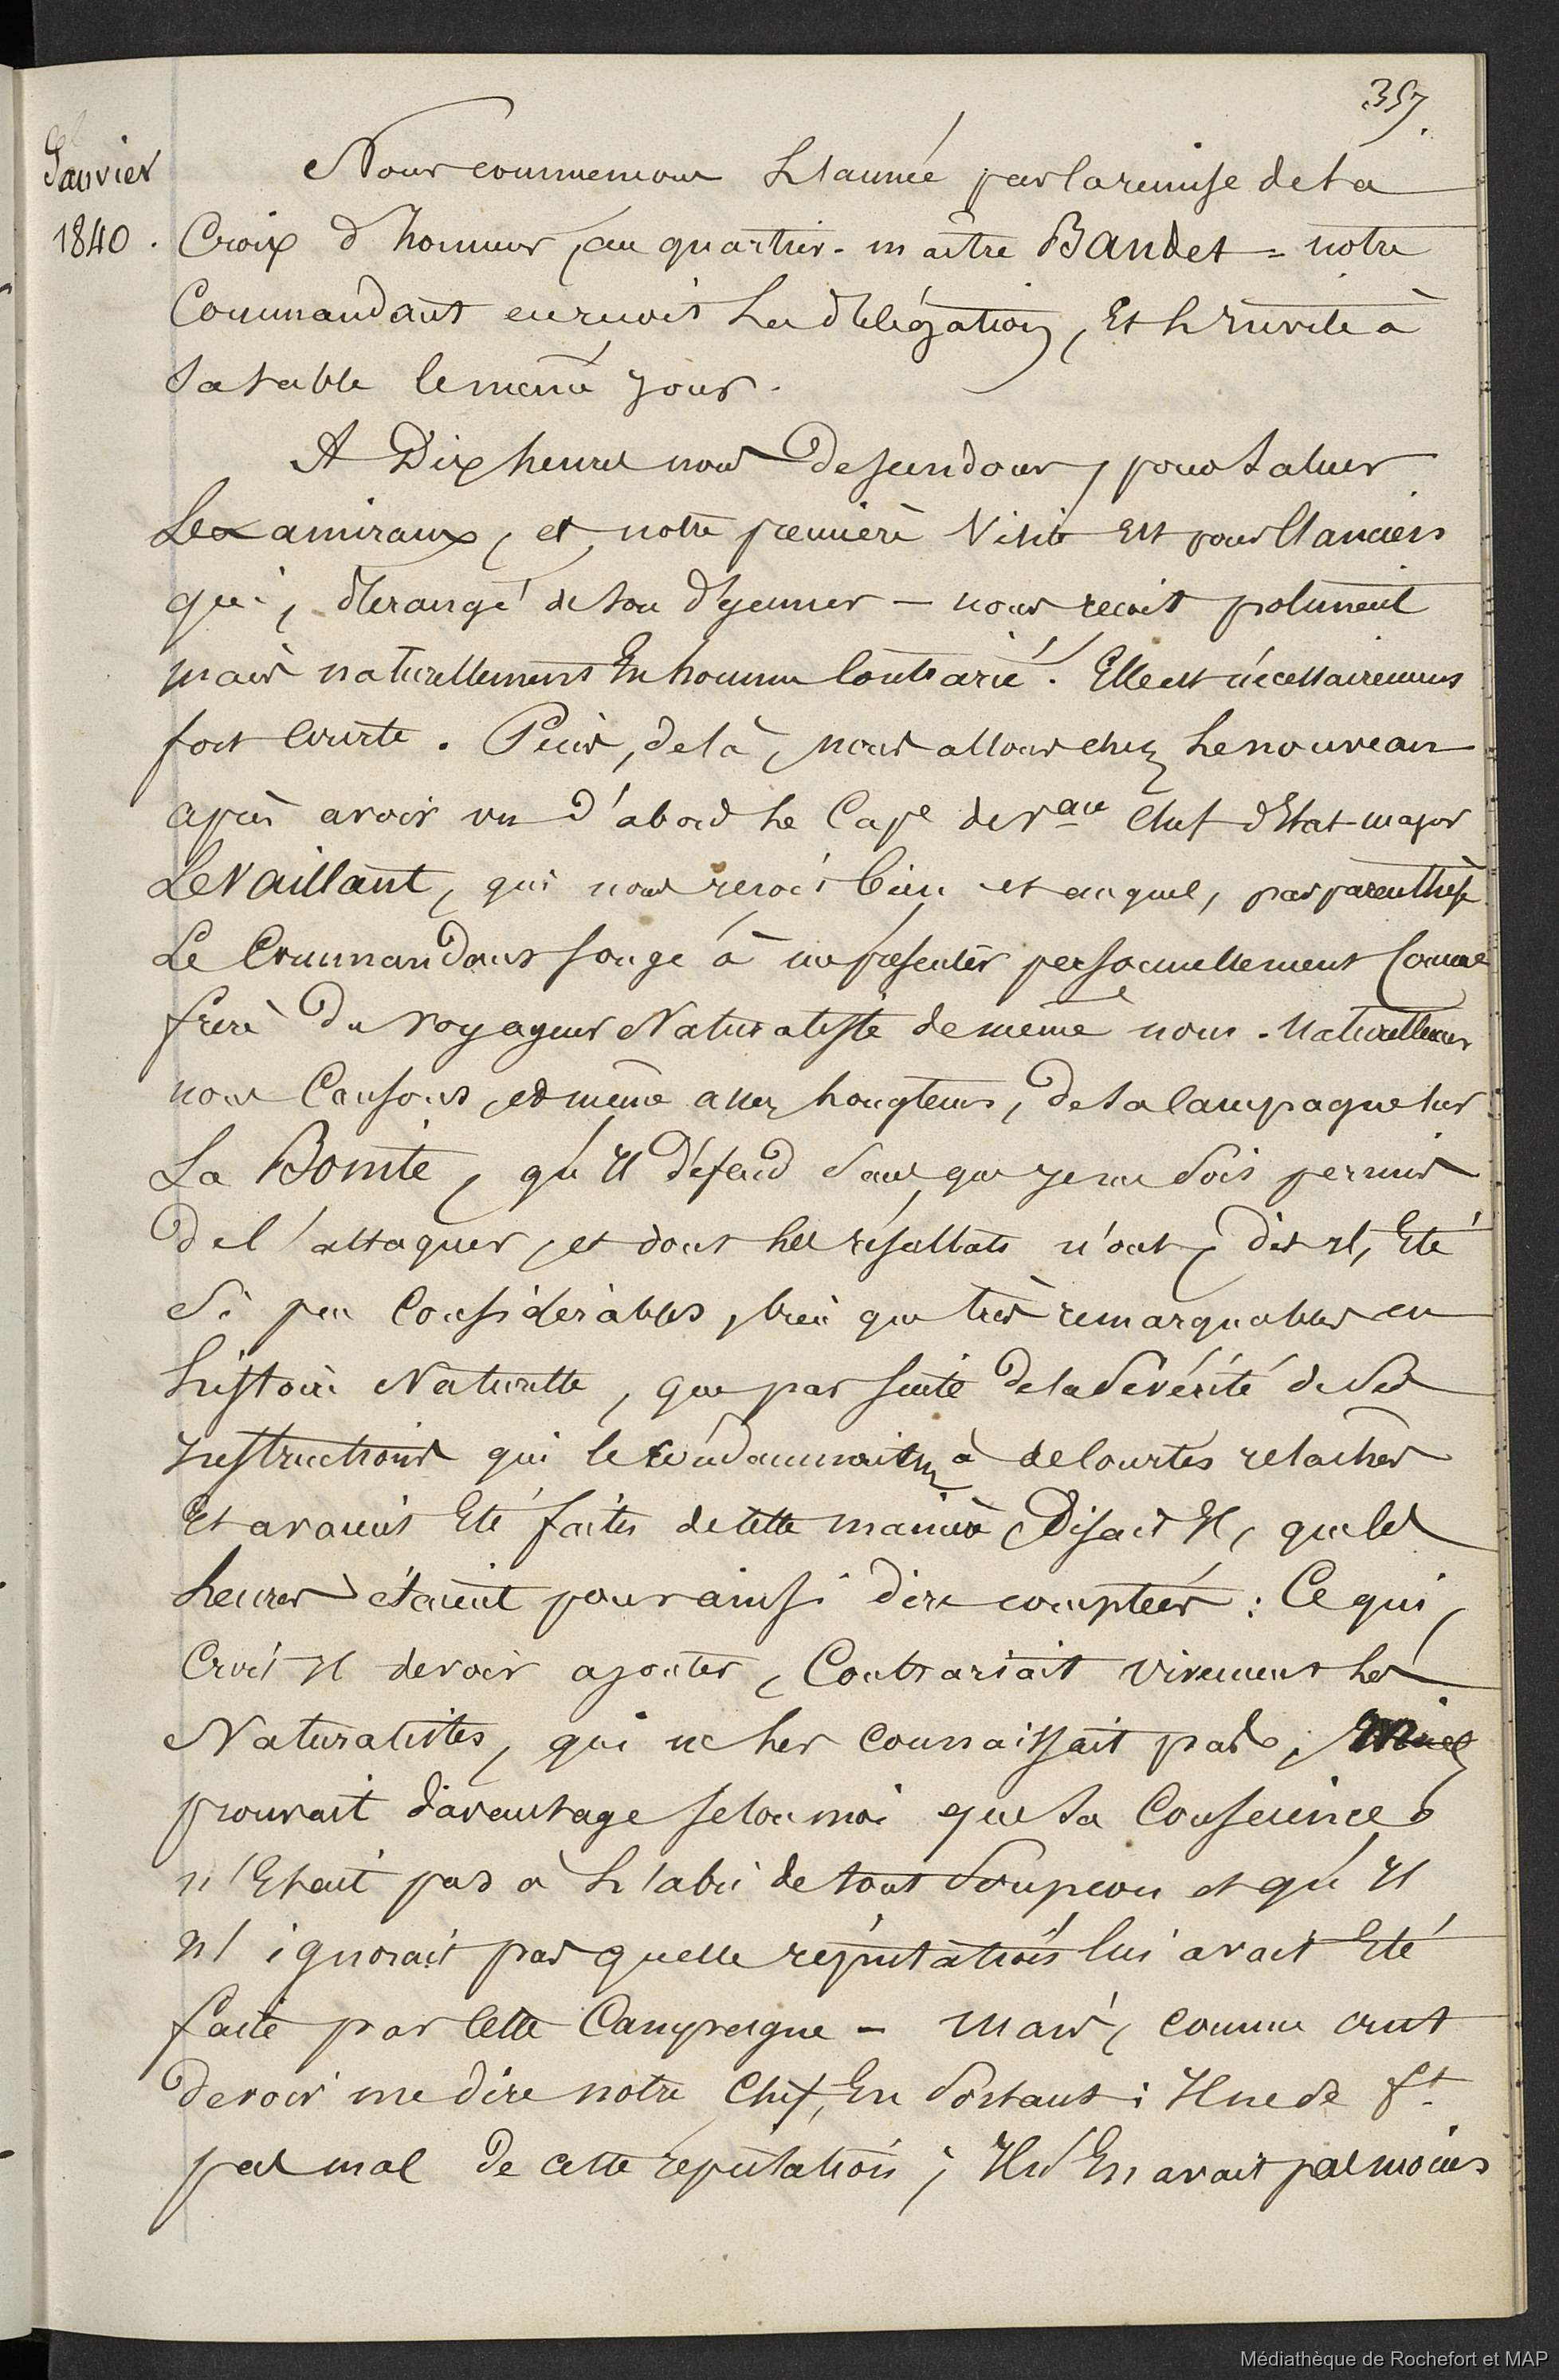 357.
Janvier
1840.
Nous commencons L'année par la remise de sa
Croix d'honneur, au quartier-maître Bandet = notre
Commandant en recoit La délégation, Et L'invite à
sa table le même jour.
A Dix heures nous descendons, pour saluer
Les amiraux, et, notre première Visite Est pour l'ancien
qui, dérangé de son déjeuner — nous recoit poliment
mais naturellement En homme Contrarié. Elle est nécessairement
fort Courte. Puis, de là, nous allons chez Le nouveau
après avoir vu d'abord Le Cape de Vau Chef d'Etat-major
Levaillant, qui nous recoit bien et auquel, par parenthèse
Le Commandant songe à me présenter personnellement Comme
frère du voyageur Naturaliste de même nom. Naturellement
nous Causons, et même assez Longtems, de sa Campagne sur
La Bonite, qu'Il défend sans que je me sois permis
de l'attaquer, et dont Les résultats n'ont, dit-Il, Eté
si peu Considérables, bien que très remarquables en
histoire Naturelle, que par suite de la sévérité de ses
Instructions qui le Condamnaient à de Courtes relaches
Et avaient Eté faites de telle manière, Disait Il, que les
heures étaient pour ainsi dire comptées : Ce qui,
Croit Il devoir ajouter, Contrariait vivement Les
Naturalistes, qui ne Les connaissait pas,
prouvait d'avantage selon moi que sa Conscience
n'Etait pas à L'abri de tout Soupcon et qu'Il
n'ignorait pas quelle réputation lui avait Eté
faite par Cette Campagne — mais, comme crut
devoir me dire notre Chef, En Sortant : Il ne se ft
pas mal de cette réputation ; Il n'En avait pas moins
Médiathèque de Rochefort et MAP